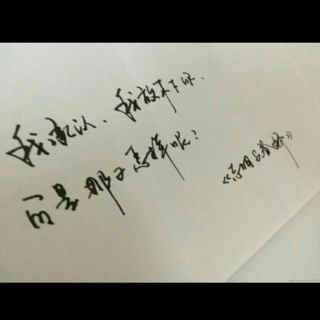 我承认、我放不下你.
可是那又怎样呢？